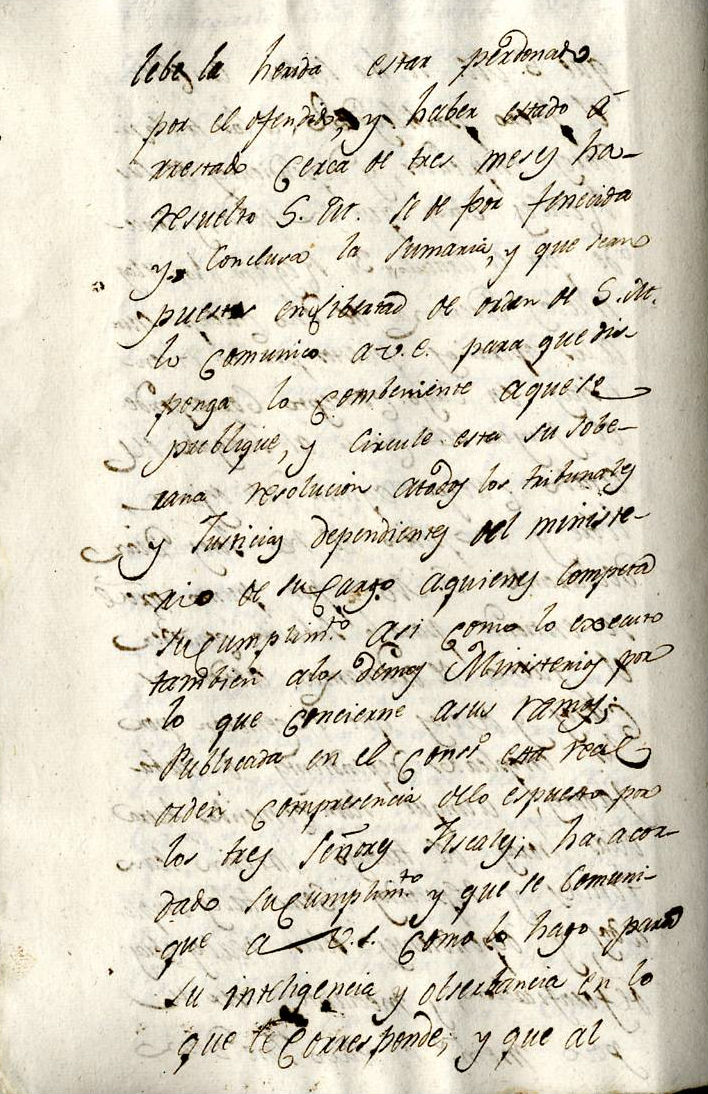 lebe la herida estar perdonado
por el ofendido, y haber estado a-
rrestado cerca de tres meses ha-
resuelto S. M. se de por fenecida
y conclusa la sumaria, y que sean
puestos en libertad de orden de S. M.
lo comunico a v.e. para que dis-
ponga lo combeniente a que se
publique, y circule esta su sobe-
rana resolucion atodos los tribunales
y Justicias dependientes del ministe-
rio de su cargo aquienes competa
su cumplimto asi como lo executo
tambien alos demas Ministerios por
lo que concierne asus ramos;
Publicada en el Consº esta real
orden compresencia dello espuesto por
los tres Señores Fiscales; ha acor-
dado su cumplimto y que se comuni-
que a V.S. como lo hago para
su inteligencia y obserbancia en lo
que le corresponde; y que al